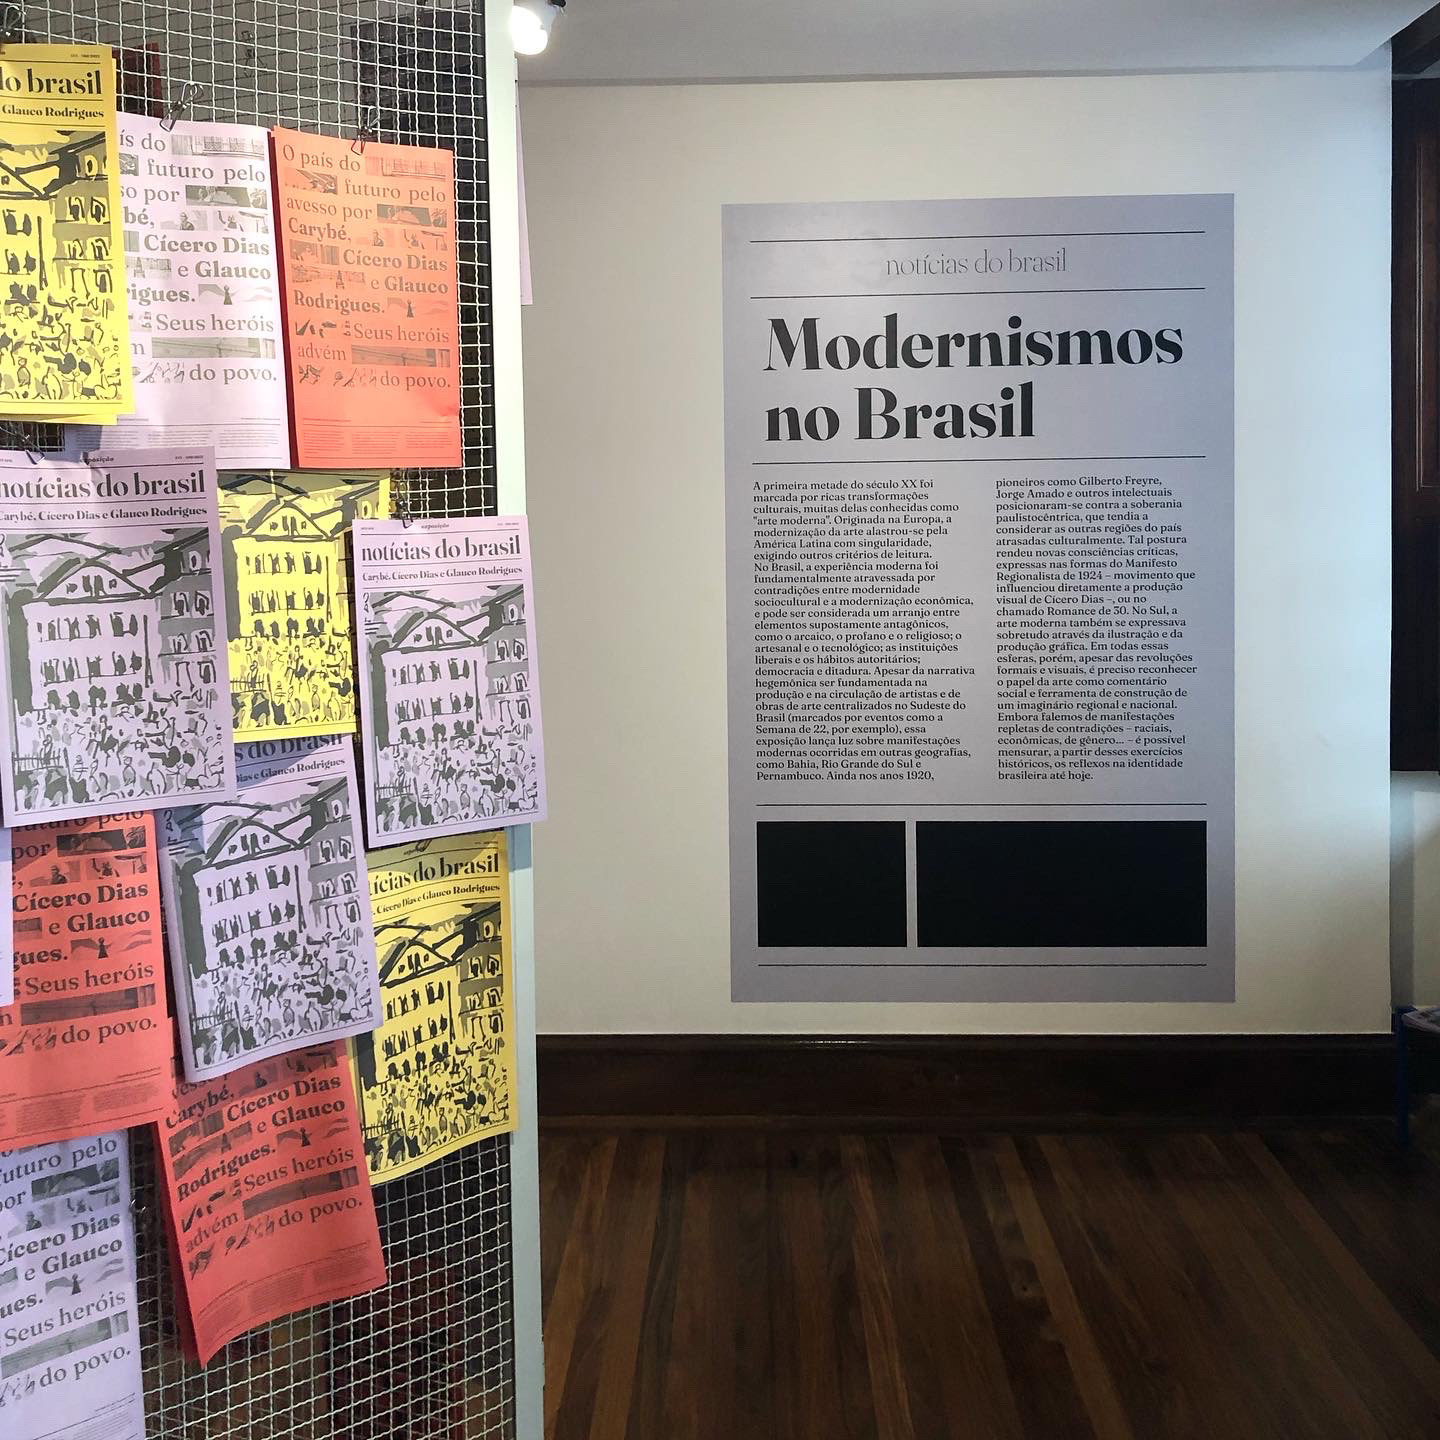 do brasil
Glauco Rodrigues
ís do
futuro pelo
so por
bé,
Cícero Dias
e Glauco
rigues.
Seus heróis
m
do povo.
O país do
futuro pelo
avesso por
Carybé,
Cícero Dias
e Glauco
Rodrigues.
Seus heróis
advém
do povo.
exposição
notícias do brasil
Carybé, Cícero Dias e Glauco Rodrigues
exposição
notícias do brasil
Carybé, Cícero Dias e Glauco Rodrigues
s do brasil
Dias e Glauco Rodrigues
ícias do brasil
, Cícero Dias e Glauco Rodrigues
futuro pelo
por
Cícero Dias
e Glauco
gues.
Seus heróis
m
do povo.
avesso
Carybé,
Cícero Dias
e Glauco
Rodrigues.
Seus heróis
advém
do povo.
futuro pelo
por
Cícero Dias
e Glauco
ues.
Seus heróis
do povo.
notícias do brasil
Modernismos
no Brasil
A primeira metade do século XX foi
marcada por ricas transformações
culturais, muitas delas conhecidas como
"arte moderna". Originada na Europa, a
modernização da arte alastrou-se pela
América Latina com singularidade,
exigindo outros critérios de leitura.
No Brasil, a experiência moderna foi
fundamentalmente atravessada por
contradições entre modernidade
sociocultural e a modernização econômica,
e pode ser considerada um arranjo entre
elementos supostamente antagônicos,
como o arcaico, o profano e o religioso; o
artesanal e o tecnológico; as instituições
liberais e os hábitos autoritários;
democracia e ditadura. Apesar da narrativa
hegemônica ser fundamentada na
produção e na circulação de artistas e de
obras de arte centralizados no Sudeste do
Brasil (marcados por eventos como a
Semana de 22, por exemplo), essa
exposição lança luz sobre manifestações
modernas ocorridas em outras geografias,
como Bahia, Rio Grande do Sul e
Pernambuco. Ainda nos anos 1920,
pioneiros como Gilberto Freyre,
Jorge Amado e outros intelectuais
posicionaram-se contra a soberania
paulistocêntrica, que tendia a
considerar as outras regiões do país
atrasadas culturalmente. Tal postura
rendeu novas consciências críticas,
expressas nas formas do Manifesto
Regionalista de 1924 – movimento que
influenciou diretamente a produção
visual de Cícero Dias –, ou no
chamado Romance de 30. No Sul, a
arte moderna também se expressava
sobretudo através da ilustração e da
produção gráfica. Em todas essas
esferas, porém, apesar das revoluções
formais e visuais, é preciso reconhecer
o papel da arte como comentário
social e ferramenta de construção de
um imaginário regional e nacional.
Embora falemos de manifestações
repletas de contradições – raciais,
econômicas, de gênero... – é possível
mensurar, a partir desses exercícios
históricos, os reflexos na identidade
brasileira até hoje.